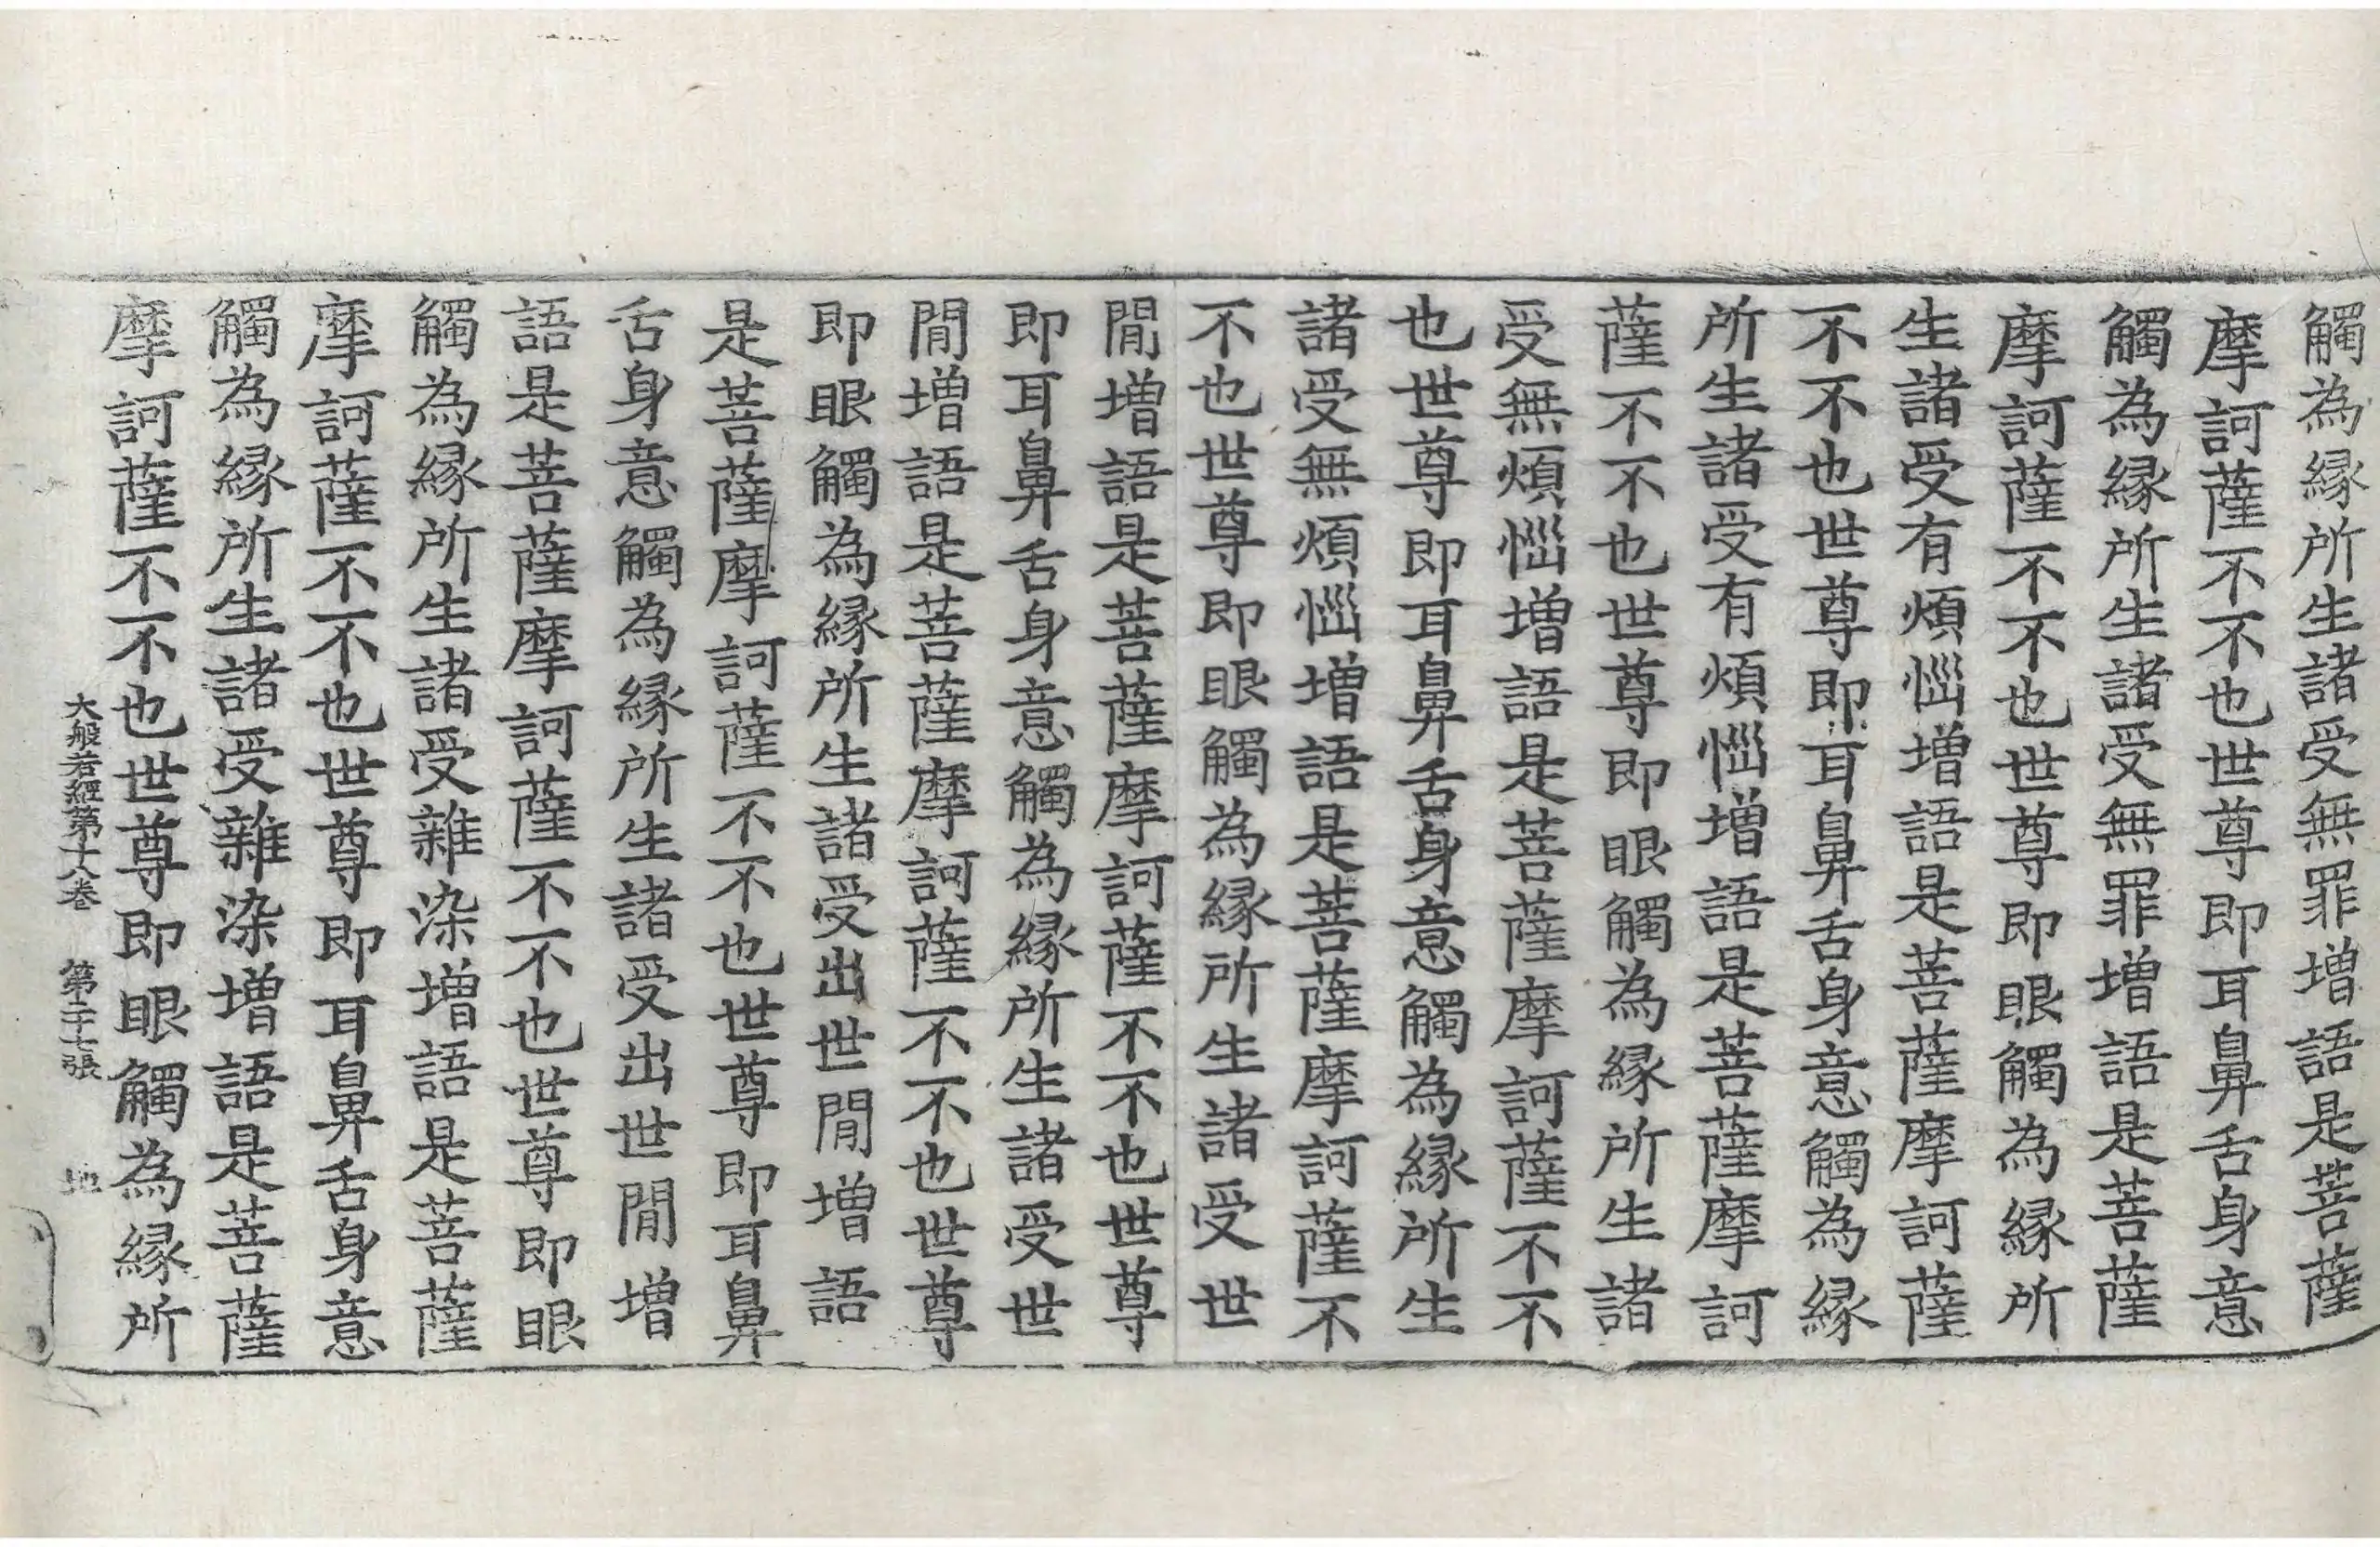 觸為縁所生諸受無罪增語是菩薩
摩訶薩不不也世尊即耳鼻舌身意
觸為縁所生諸受無罪增語是菩薩
摩訶薩不不也世尊即眼觸為縁所
生諸受有煩惱增語是菩薩摩訶薩
不不也世尊即耳鼻舌身意觸為縁
所生諸受有煩惱增語是菩薩摩訶
薩不不也世尊即眼觸為縁所生諸
受無煩惱增語是菩薩摩訶薩不不
也世尊即耳鼻舌身意觸為縁所生
諸受無煩惱增語是菩薩摩訶薩不
不也世尊即眼觸為縁所生諸受世
閒增語是菩薩摩訶薩不不也世尊
即耳鼻舌身意觸為縁所生諸受世
閒增語是菩薩摩訶薩不不也世尊
即眼觸為縁所生諸受出世閒增語
是菩薩摩訶薩不不也世尊即耳鼻
舌身意觸為縁所生諸受出世閒增
語是菩薩摩訶薩不不也世尊即眼
觸為縁所生諸受雜染增語是菩薩
摩訶薩不不也世尊即耳鼻舌身意
觸為縁所生諸受雜染增語是菩薩
摩訶薩不不也世尊即眼觸為縁所
大般若經第十八卷 第二十七張 地